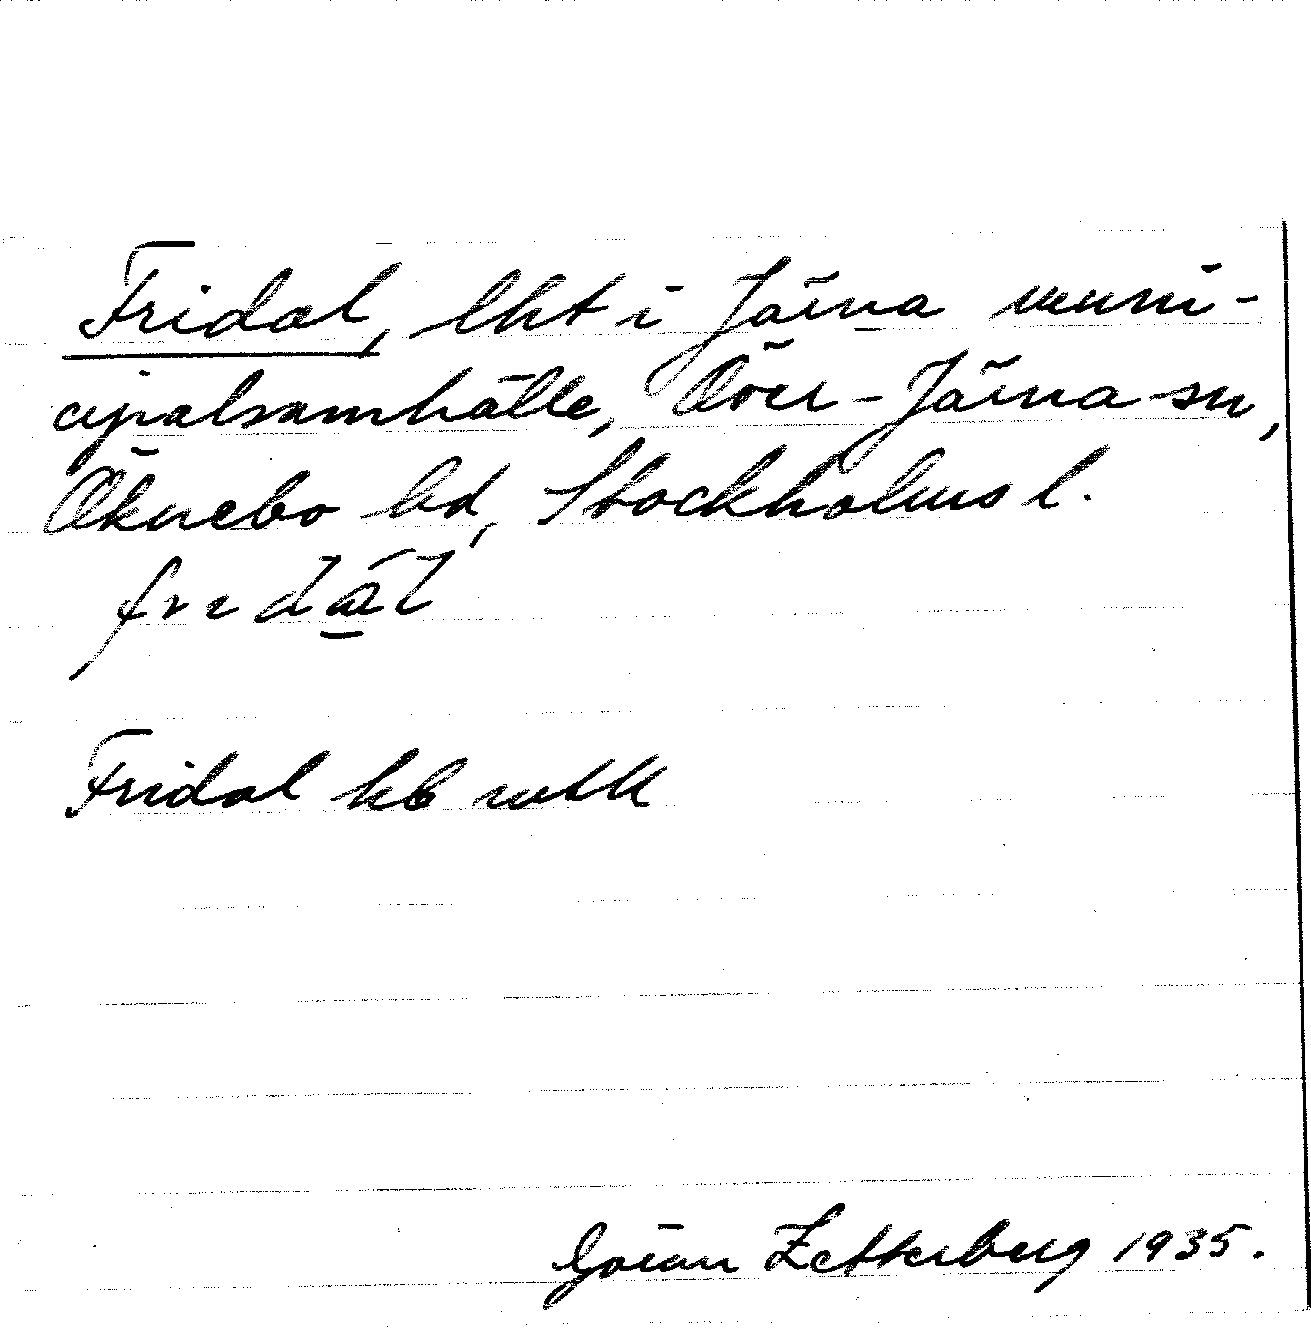 Fridal, lht i Järna muni-
cipalsamhälle, Över-Järna sn,
Öknebo hd, Stockholms l.
Fridal hb mtlk
Göran Zetterberg 1935.